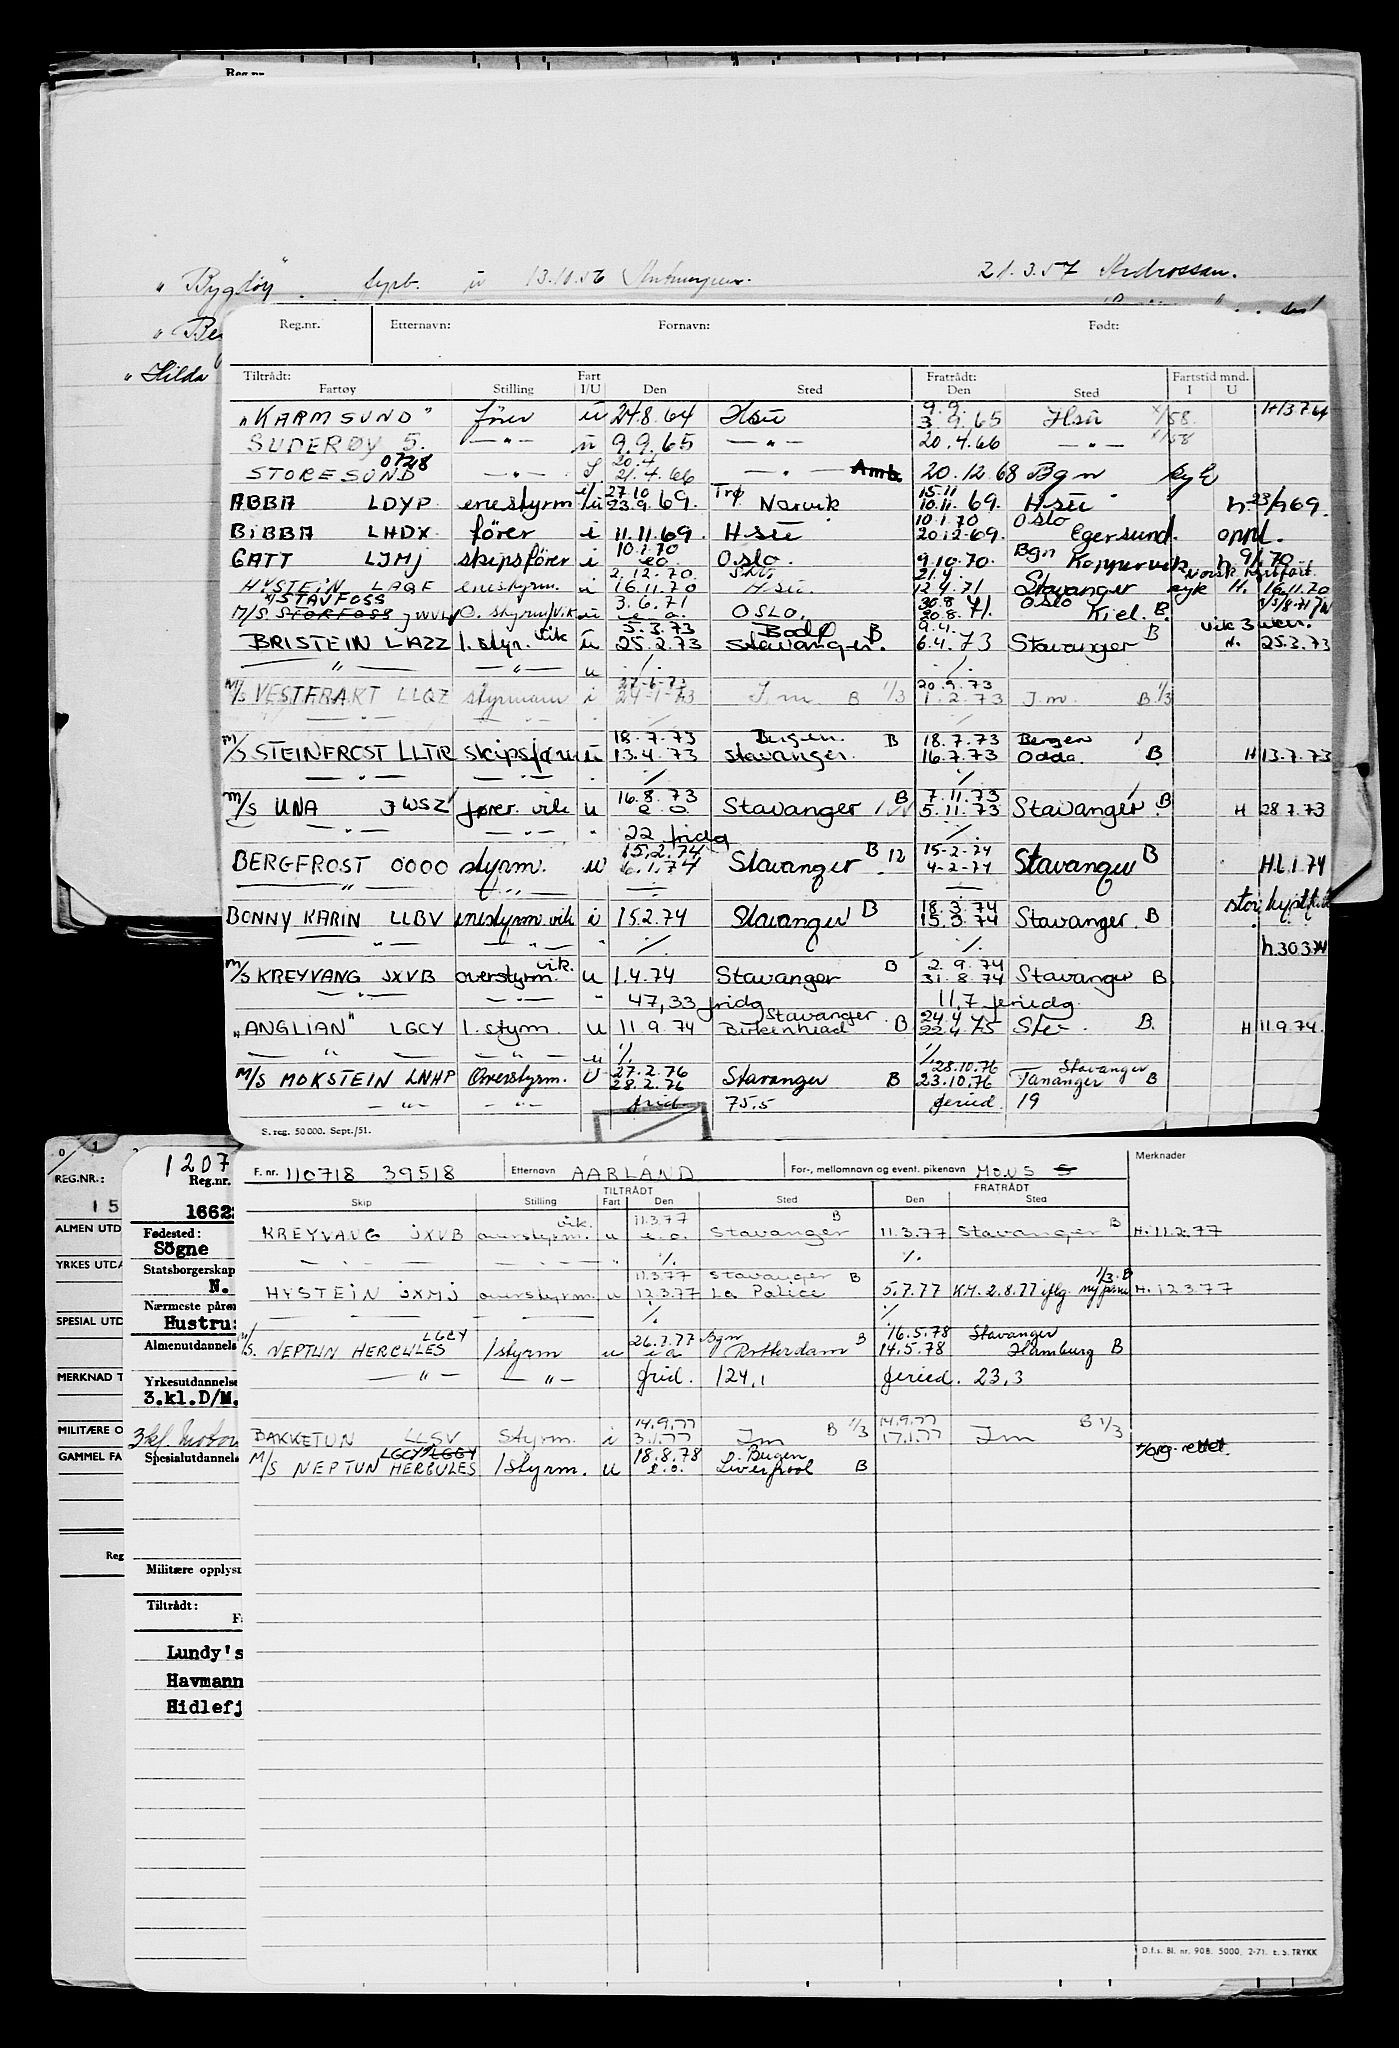 Reg.nr.
" Bygdöy" fyrb. u 13.10.56 21.3.57 Ardrossan.
" Be
" Hilda
Reg.nr. Etternavn: Fornavn: Født:
Tiltrådt: Fratrådt: Fartstid mnd.
Fartøy Stilling Fart I/U Den Sted Den Sted I U
"KARMSUND" förer u 24.8.64 Hsu 9.9. 3.9.65 Hsu x/58. H13764
SUDERØY 5. —"— u 9.9.65 —"— 20.4.66 —"— x/58
STORESUND 0728 —"— S 20.4 21.4.66 —"— Amb. 20.12.68 Bgn syk
ABBA LDYP enestyrm i/u 27.10 23.9.69. Trø Narvik 15.11 10.11.69. Hsu h 23/9 69.
BIBBA LHDX förer i 11.11.69. Hsu 10.1.70 20.12.69. Oslo Egersund. oppl.
GATT LJMJ skipsförer i 10.1.70 eo. Oslo. 9.10.70. Bgn Kopervik h 9/1 70
HYSTEIN LAQF enestyrm. i 2.12.70 16.11.70 Hsu. 21.4 12.4.71 Stavanger syk H. 16.11.70
Norsk kystfart.
M/S STAVFOSS STORFOSS JWVL O. styrm/vik u 3.6.71 e o. OSLO. 30.8 20.8.71. Oslo Kiel. B.
vik 3 uker.
BRISTEIN LAZZ 1. styr. vik u 5.3.73 25.2.73 Bodø Stavanger. B 9.4. 6.4.73 Stavanger B H. 25.3.73
—"— —"— u ./. ./.
M/S VESTFRAKT LLQZ styrmann i 24-1-73 Jm B 1/3 20.9.73 1.2.73 Jm. B 1/3
—"— —"— ./. ./.
M/S STEINFROST LLTR skipsförer u 18.7.73 13.4.73 Bergen. Stavanger. B 18.7.73 16.7.73 Bergen Odda. B H 13.7.73
—"— —"— ./. ./.
M/S UNA JWSZ fører. vik u 16.8.73 e o. Stavanger B 7.11.73 5.11.73 Stavanger B. H 28.7.73
—"— —"— " 22 fridg ./.
BERGFROST 0000 styrm. u 15.2.74 6.1.74 Stavanger B 12 15-2-74 4-2-74 Stavanger B H.6.1.74
—"— —"—
BONNY KARIN LLBV enestyrm vik i 15.2.74 Stavanger B 18.3.74 15.3.74 Stavanger. B stor kystf.
—"— —"— " ./. ./. h.30374
M/S KREYVANG JXVB overstyrm. vik. u 1.4.74 Stavanger B 2.9.74 31.8.74 Stavanger B.
—"— —"— " 47,33 fridg 11,7 feriedg.
"ANGLIAN" LGCY 1. styrm. u 11.9.74 Stavanger Birkenhead B 24.4 22.4.75 Stv. B. H 11.9.74.
—"— —"— u ./. ./.
M/S MOKSTEIN LNHP Overstyrm. U 27.2.76 28.2.76 Stavanger B 28.10.76 23.10.76 Stavanger Tananger B
—"— —"— frid. 75.5 feried. 19
S. reg. 50 000. Sept./51.
0 1
REG.NR.: 1207 Reg.nr.
15 1662
ALMEN UTD Fødested:
Sögne
YRKES UTDA Statsborgerskap
N.
Nærmeste påre
SPESIAL UTD Hustru
Almenutdannels
MERKNAD T Yrkesutdannelse
3.kl.D/M.
MILITÆRE O 3kl. Motor
GAMMEL FA Spesialutdannels
Reg
Militære opplysn
Tiltrådt:
F
Lundy's
Havmann
Hidlefj
F. nr. 110718 39518 Etternavn AARLAND For-, mellomnavn og event. pikenavn MONS S Merknader
TILTRÅDT FRATRÅDT
Skip Stilling Fart Den Sted Den Sted
KREYVANG JXVB overstyrm. vik. u 11.3.77 e.o. Stavanger B 11.3.77 Stavanger B H. 11.2.77
—"— —"— " ./. ./.
HYSTEIN JXMJ overstyrm. u 11.3.77 12.3.77 Stavanger La Palice B 5.7.77 KM. 2.8.77 iflg. ny 1/3 B H. 12.3.77
—"— —"— ./. ./.
M/S. NEPTUN HERCULES LGCY 1styrm u 26.7.77 Bgn Rotterdam B 16.5.78 14.5.78 Stavanger Hamburg B
—"— —"— frid. 124,1 feried. 23,3
BAKKETUN LLSV styrm. i 14.9.77 3.1.77 Jm B 1/3 14.9.77 17.1.77 Jm B 1/3
M/S NEPTUN HERCULES LGCY LGGY 1styrm. u 18.8.78 e.o. Bergen Liverpool B
D.f.s. Bl. nr. 908. 5000. 2-71. E. S. TRYKK